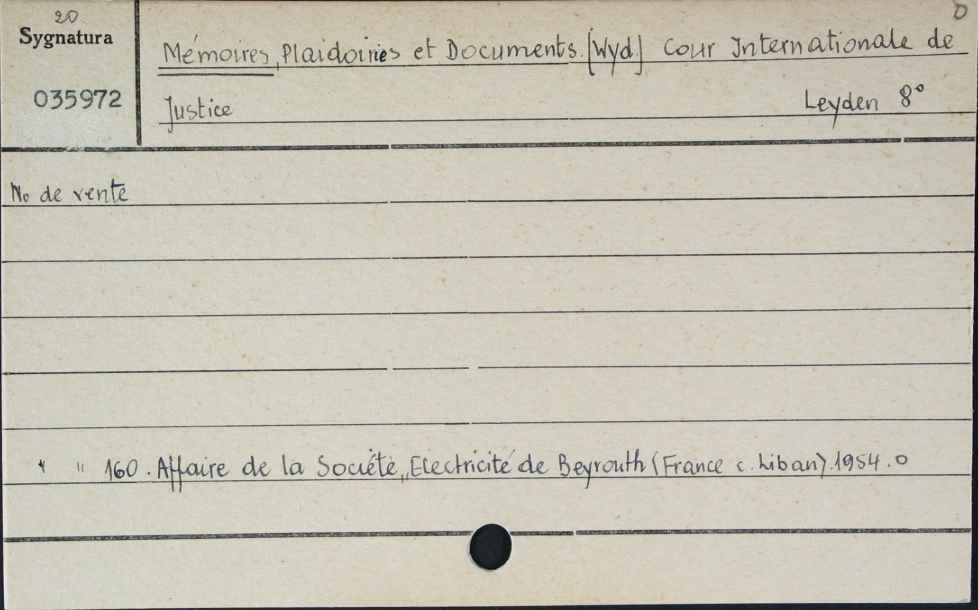 20
Sygnatura
035972
0
Mémoires, Plaidoiries et Documents. [Wyd] Cour Internationale de
Justice Leyden 8°
No de vente
" " 160. Affaire de la Société „Electricité de Beyrouth (France c. Liban). 1954. 0